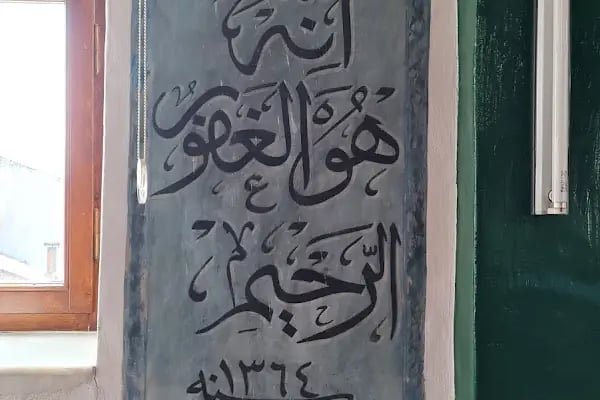 إنه
هو الغفور
الرحيم
سنة ١٣٦٤